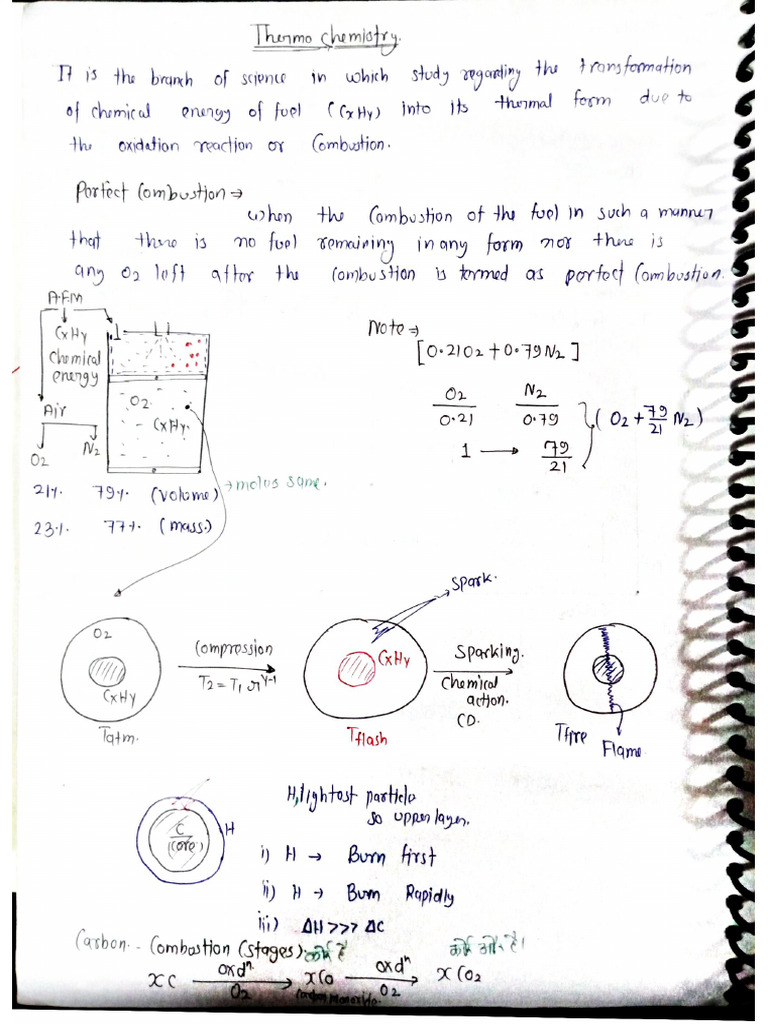 Thermo chemistry.
It is the branch of science in which study regarding the transformation
of chemical energy of fuel (CxHy) into its thermal form due to
the oxidation reaction or Combustion.
Perfect Combustion →
When the Combustion of the fuel in such a manner
that there is no fuel remaining in any form nor there is
any O2 left after the combustion is termed as perfect Combustion.
AFM
CxHy
Chemical
energy
Air
O2
N2
O2
CxHy.
21%. 79%. (Volume) → moles same.
23%. 77%. (mass.)
Note →
[0.21O2 + 0.79N2]
O2 N2
0.21 0.79
1 → 79/21
(O2 + 79/21 N2)
Spark.
O2
CxHy
Tatm.
Compression
T2 = T1 r^γ-1
CxHy
Tflash
Sparking.
Chemical
action.
CD.
Tfire
Flame.
C
(core)
H
H, lightest particle
so upper layer.
i) H → Burn first
ii) H → Burn Rapidly
iii) ΔH >>> ΔC
Carbon. - Combustion (stages)
xC oxdⁿ O2 → xCO oxdⁿ O2 → xCO2
Carbon monoxide.